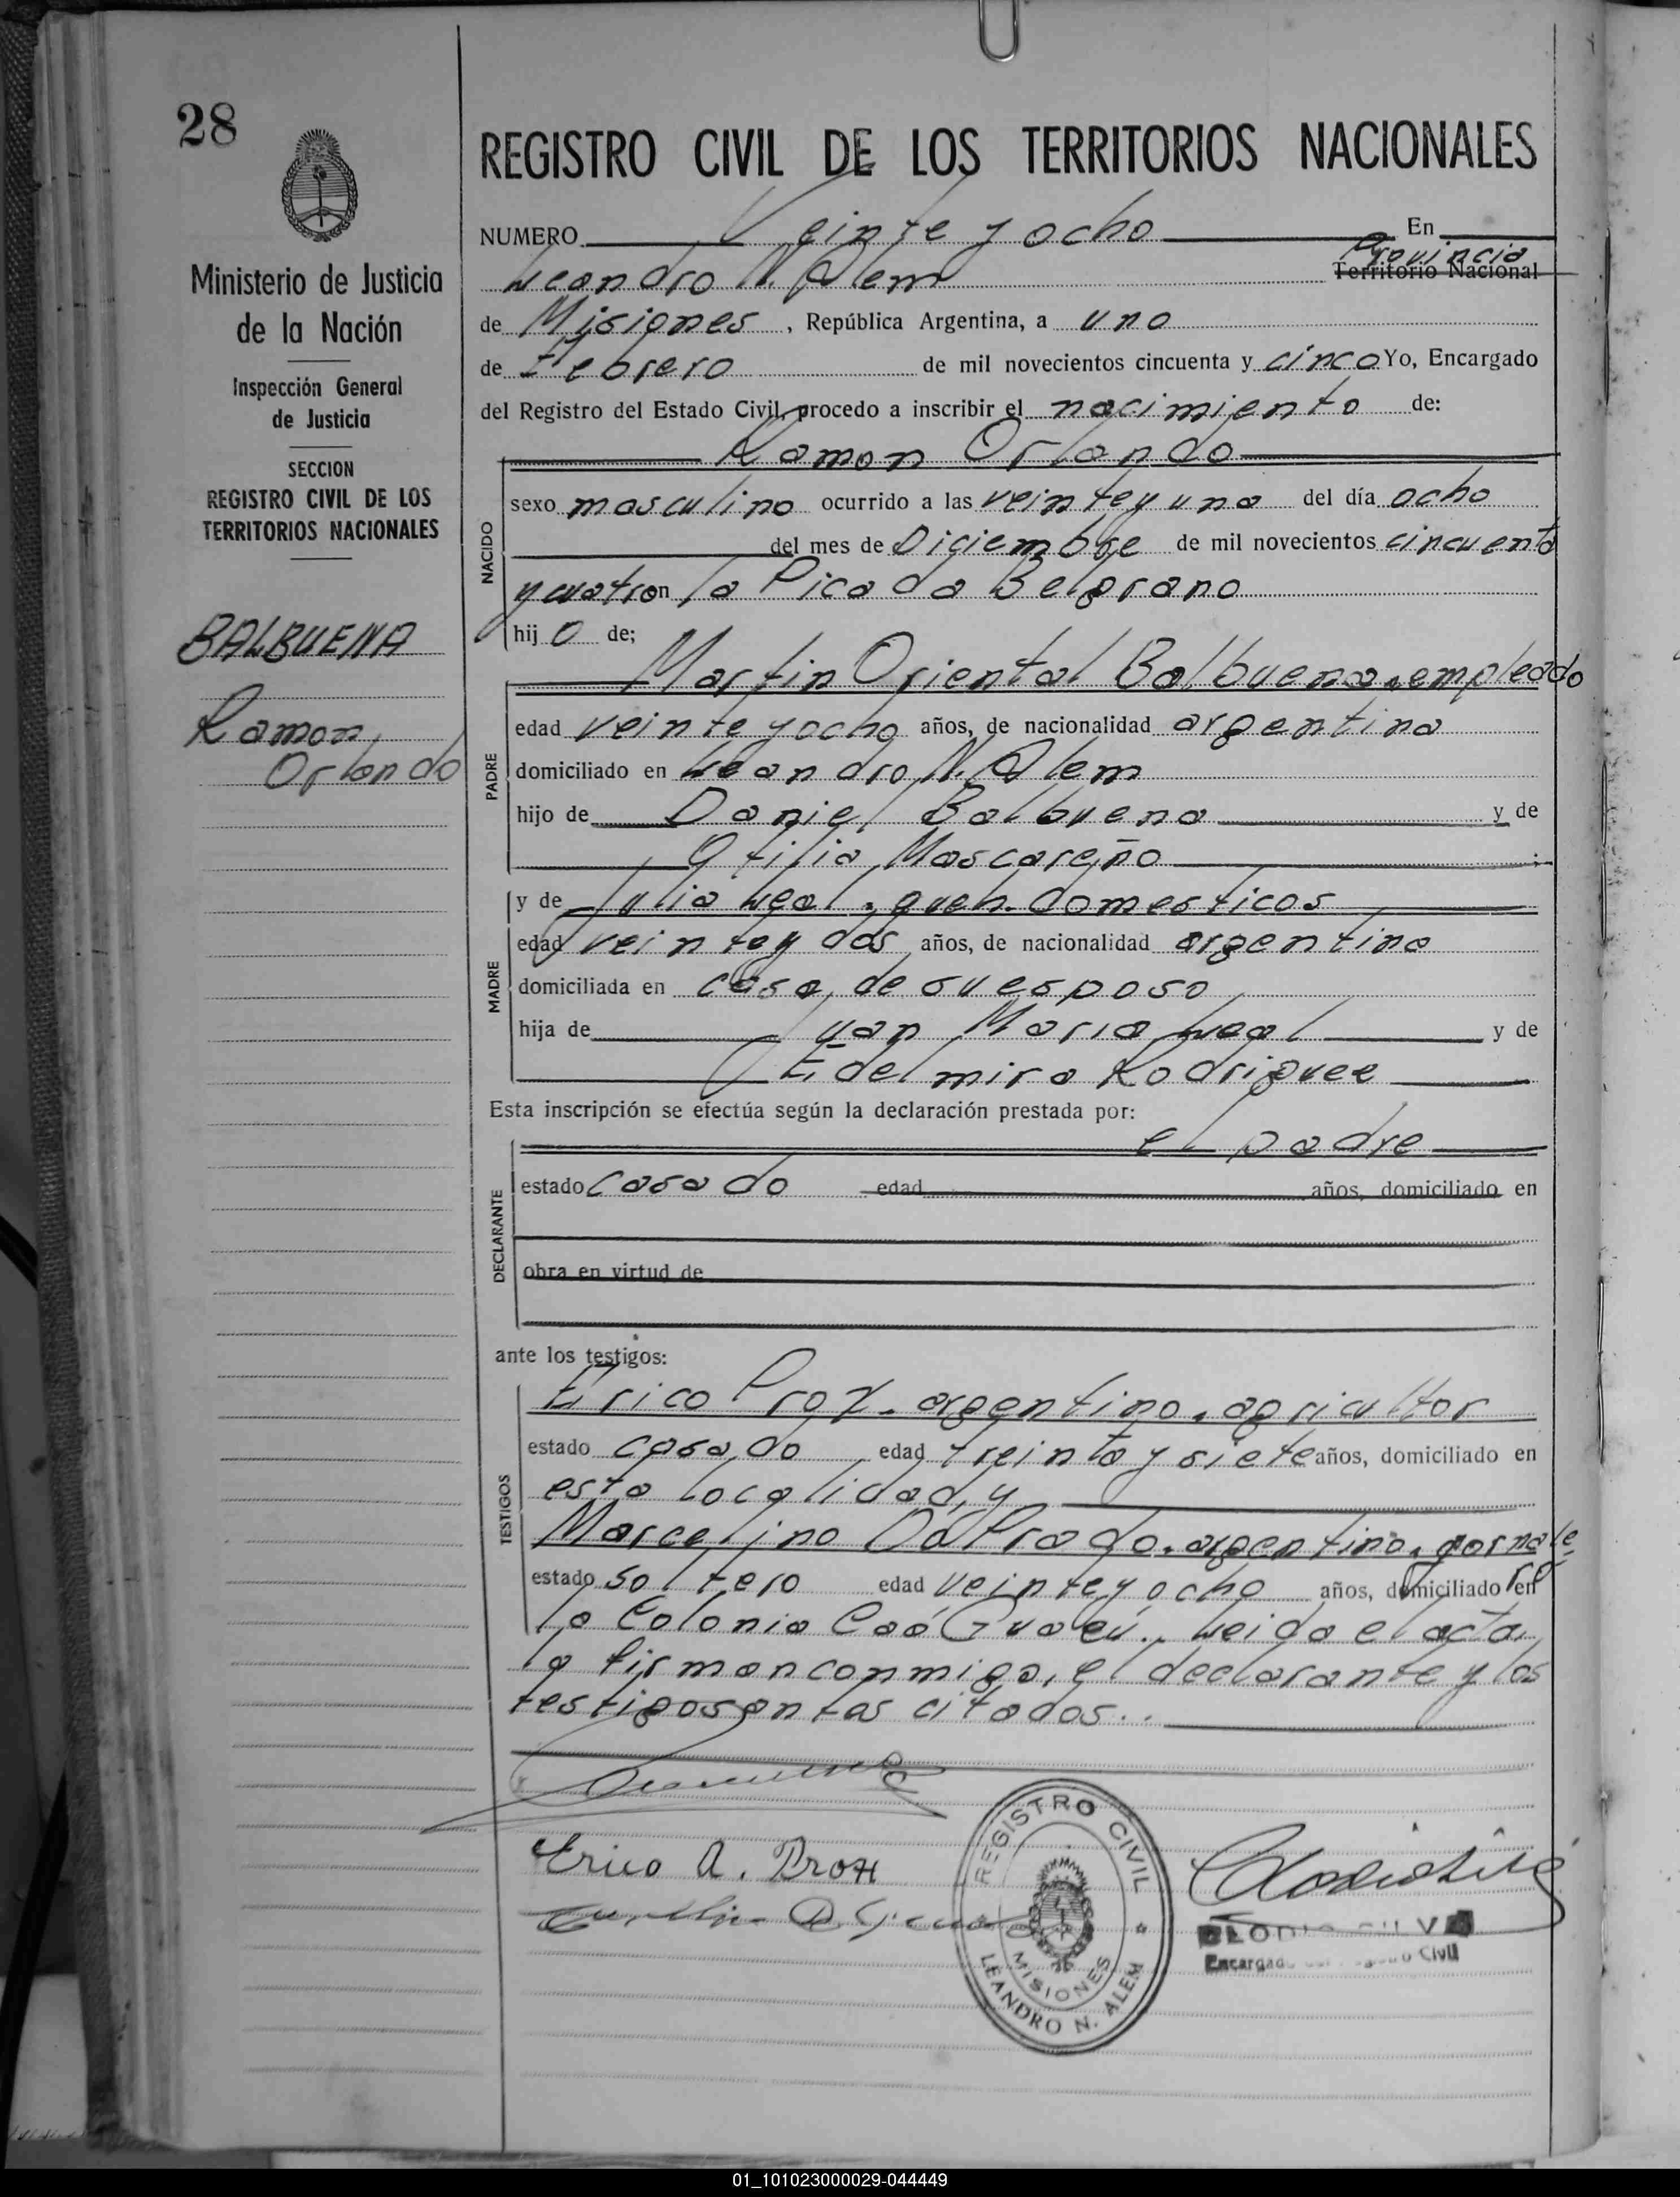 28
Ministerio de Justicia
de la Nación
Inspección General
de Justicia
SECCION
REGISTRO CIVIL DE LOS
TERRITORIOS NACIONALES
BALBUENA
Ramon
Orlando
REGISTRO CIVIL DE LOS TERRITORIOS NACIONALES
NUMERO Veinte y ocho En
Leandro N. Alem Provincia Territorio Nacional
de Misiones, República Argentina, a uno
de Febrero de mil novecientos cincuenta y cinco Yo, Encargado
del Registro del Estado Civil, procedo a inscribir el nacimiento de:
Ramon Orlando
NACIDO
sexo masculino ocurrido a las veinte y una del día ocho
del mes de Diciembre de mil novecientos cincuenta
y cuatro en la Picada Belgrano
hijo de;
Martin Oriental Balbuena. empleado
PADRE
edad veinte y ocho años, de nacionalidad argentina
domiciliado en Leandro N. Alem
hijo de Daniel Balbuena y de
Otilia Mascareño
y de Julia Leal. queh. domesticos
MADRE
edad veinte y dos años, de nacionalidad argentina
domiciliada en casa de su esposo
hija de Juan Maria Leal y de
Edelmira Rodriguez
Esta inscripción se efectúa según la declaración prestada por:
el padre
DECLARANTE
estado casado edad años, domiciliado en
obra en virtud de
ante los testigos:
TESTIGOS
Erico Prox. argentino. agricultor
estado casado edad treinta y siete años, domiciliado en
esta localidad, y
Marcelino Da Prado. argentino. jornale
estado soltero edad veinte y ocho años, domiciliado en ro
la Colonia Caá Guaby. Leida el acta,
la firman conmigo, el declarante y los
testigos antes citados..
Erico A. Prox
REGISTRO CIVIL
MISIONES
LEANDRO N. ALEM
Encargado Civil
01_101023000029-044449